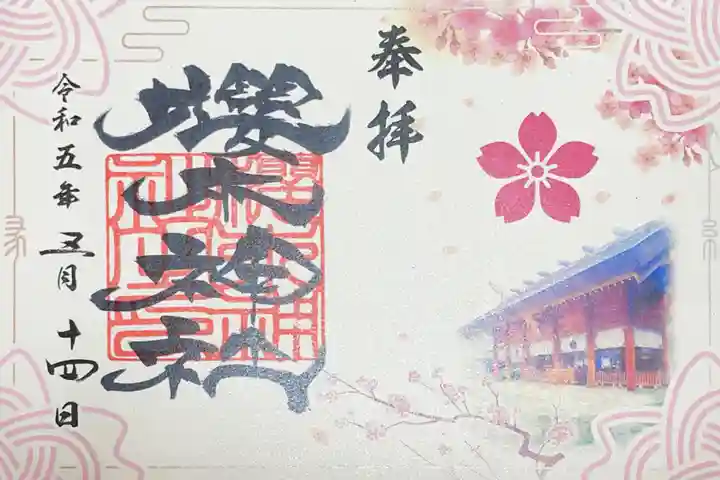 奉拝
櫻木神社
令和五年五月十四日